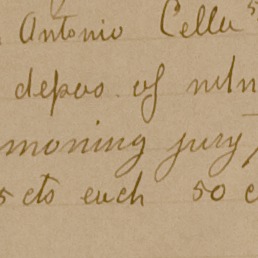 Antonio Cella 5
depos. of
moning jury
5 cts each 50 c